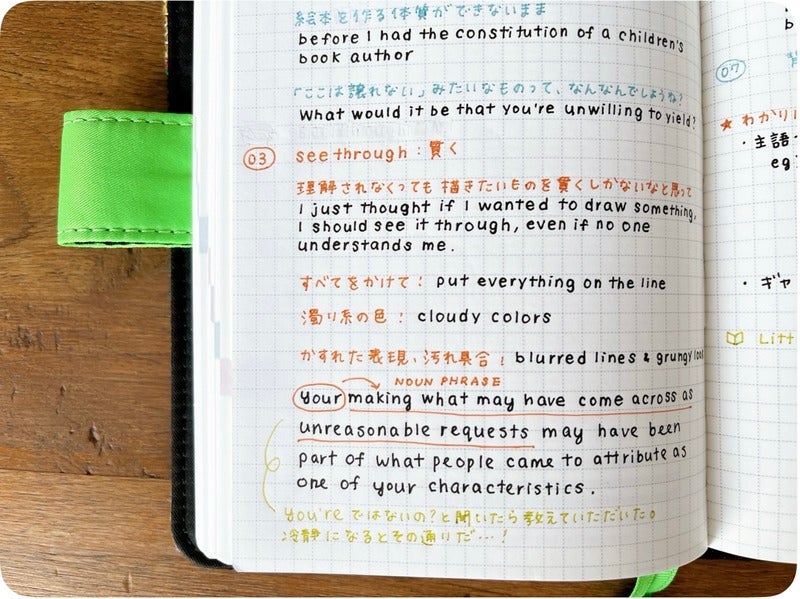 絵本を作る体質ができないまま
before I had the constitution of a children's
book author
「ここは譲れない」みたいなものって、なんなんでしょうね?
What would it be that you're unwilling to yield?
03 see through : 貫く
理解されなくっても描きたいものを貫くしかないなと思って
I just thought if I wanted to draw something,
I should see it through, even if no one
understands me.
すべてをかけて : put everything on the line
濁り系の色 : cloudy colors
かすれた表現、汚れ具合 : blurred lines & grungy loo
NOUN PHRASE
Your making what may have come across as
unreasonable requests may have been
part of what people came to attribute as
one of your characteristics.
you're ではないの?と聞いたら教えていただいた。
冷静になるとその通りだ…!
b
07
★ わかり
・主語
eg
・ギャ
Litt